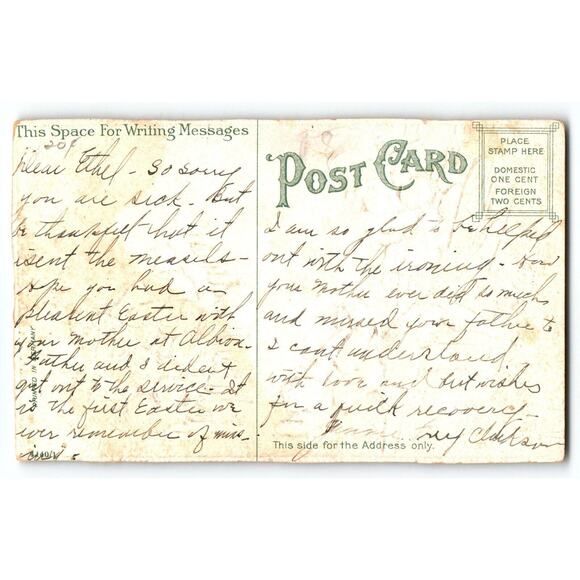 This Space For Writing Messages
20¢
Dear Ethel - So sorry
you are sick. But
be thankful that it
isent the measels -
Hope you had a
pleasent Easter with
your Mother at Albion.
Father and I dident
get out to the service - It
is the first Easter we
ever remember of miss-
POST CARD
PLACE
STAMP HERE
DOMESTIC
ONE CENT
FOREIGN
TWO CENTS
I am so glad to be helped
out with the ironing. How
your Mother ever did so much
and nursed your father to
I cant understand
with love and best wishes
for a quick recovery -
Clarkson
This side for the Address only.